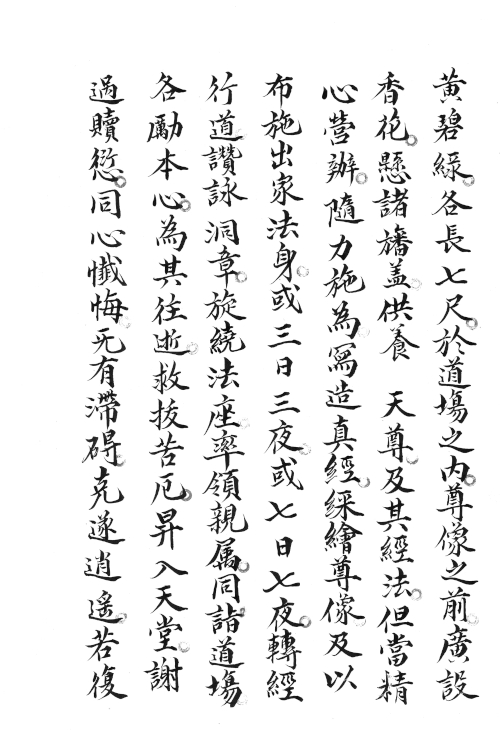 黃碧綠各長七尺於道場之內尊像之前廣設
香花懸諸旛蓋供養　天尊及其經法但當精
心營辦隨力施為寫造真經綵繪尊像及以
布施出家法身或三日三夜或七日七夜轉經
行道讚詠洞章旋繞法座率領親属同詣道場
各勵本心為其往逝救拔苦厄昇入天堂謝
過贖愆同心懺悔无有滯碍克遂逍遙若復